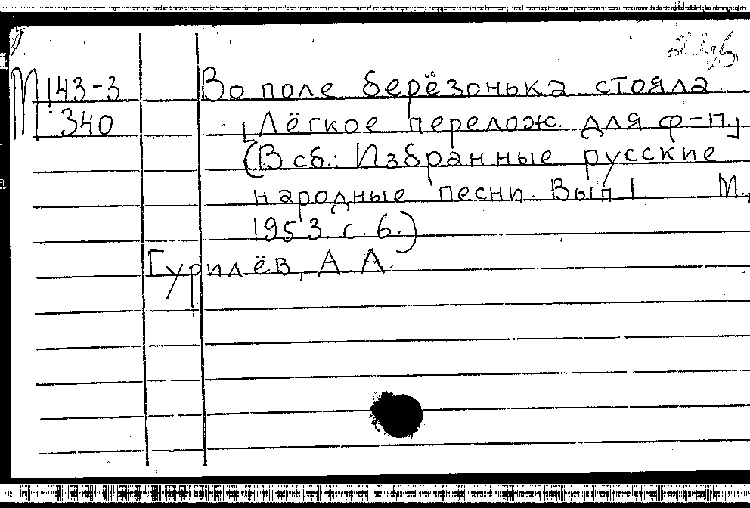 М 143-3 Во поле берёзонька стояла
340 [Лёгкое перелож. для ф-п.]
(В сб.: Избранные русские
народные песни. Вып 1 М.,
1953. с. 6.)
Гурилёв, А. А.